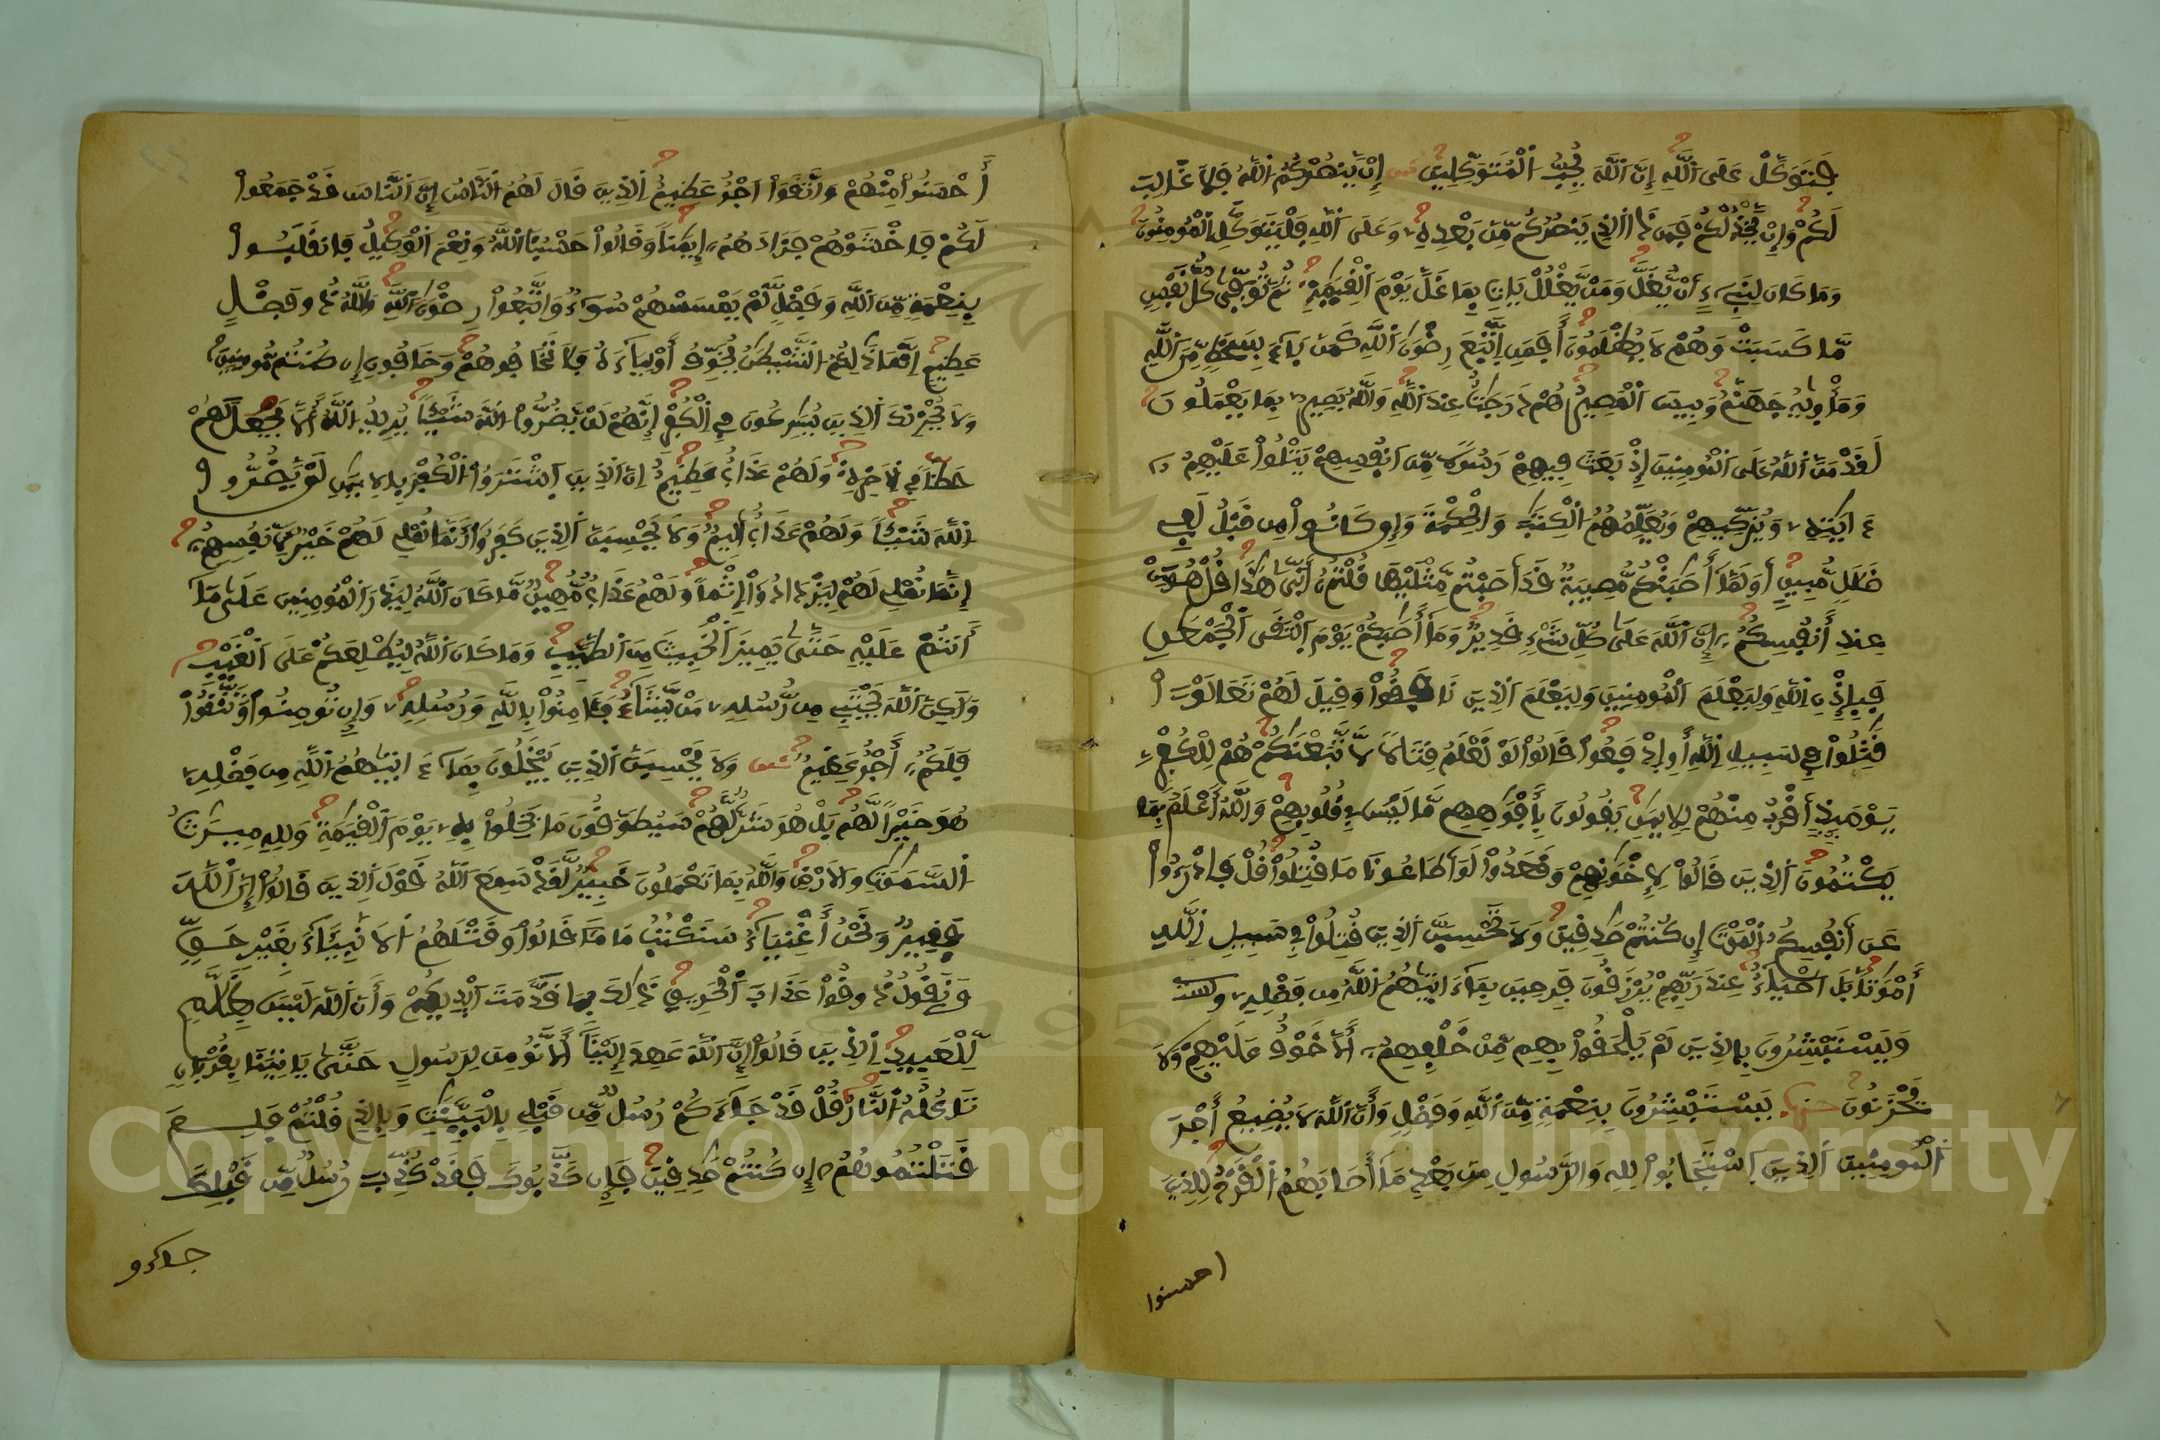 فتوكل على الله إن الله يحب المتوكلين ثمن إن ينصركم الله فلا غالب
لكم وإن يخذلكم فمن ذا الذي ينصركم من بعده وعلى الله فليتوكل المومنون
وما كان لنبيء أن يغل ومن يغلل يات بما غل يوم القيمة ثم توفى كل نفس
ما كسبت وهم لا يظلمون أفمن اتبع رضون الله كمن باء بسخط من الله
ومأويه جهنم وبيس المصير هم درجت عند الله والله بصير بما يعملون
لقد من الله على المومنين إذ بعث فيهم رسولا من انفسهم يتلوا عليهم
ءايته ويزكيهم ويعلمهم الكتب والحكمة وإن كانوا من قبل لفي
ضلل مبين أولما أصبتكم مصيبة قد أصبتم مثليها قلتم أنى هذا قل هو من
عند أنفسكم إن الله على كل شيء قدير وما أصبكم يوم التقى الجمعن
فبإذن الله وليعلم المومنين وليعلم الذين نافقوا وقيل لهم تعالوا
قتلوا في سبيل الله أو ادفعوا قالوا لو نعلم قتالا لاتبعنكم هم للكفر
يومئذ أقرب منهم للايمن يقولون بأفوههم ما ليس في قلوبهم والله أعلم بما
يكتمون الذين قالوا لإخونهم وقعدوا لو اطاعونا ما قتلوا قل فادرءوا
عن أنفسكم الموت إن كنتم صدقين ولا تحسبن الذين قتلوا في سبيل الله
أموتا بل احياء عند ربهم يرزقون فرحين بما ءاتيهم الله من فضله
ويستبشرون بالذين لم يلحقوا بهم من خلفهم ألا خوف عليهم ولا
يحزنون يستبشرون بنعمة من الله وفضل وأن الله لا يضيع أجر
المومنين الذين استجابوا لله والرسول من بعد ما أصابهم القرح للذين
احسنوا
أحسنوا منهم واتقوا اجر عظيم الذين قال لهم الناس إن الناس قد جمعوا
لكم فاخشوهم فزادهم إيمنا وقالوا حسبنا الله ونعم الوكيل فانقلبوا
بنعمة من الله وفضل لم يمسسهم سوء واتبعوا رضون الله والله ذو فضل
عظيم إنما ذلكم الشيطن يخوف أولياءه فلا تخافوهم وخافون إن كنتم مومنين
ولا يحزنك الذين يسرعون في الكفر إنهم لن يضروا الله شيئا يريد الله ألا يجعل لهم
حظا في الاخرة ولهم عذاب عظيم إن الذين اشتروا الكفر بالايمن لن يضروا
الله شيئا ولهم عذاب أليم ولا يحسبن الذين كفروا أنما نملي لهم خير لأنفسهم
إنما نملي لهم ليزدادوا إثما ولهم عذاب مهين ما كان الله ليذر المومنين على ما
أنتم عليه حتى يميز الخبيث من الطيب وما كان الله ليطلعكم على الغيب
ولكن الله يجتبي من رسله من يشاء فـامنوا بالله ورسله وإن تومنوا وتتقوا
فلكم أجر عظيم ثمن ولا يحسبن الذين يبخلون بما ءاتيهم الله من فضله
هو خيرا لهم بل هو شر لهم سيطوقون ما بخلوا به يوم القيمة ولله ميرث
السموت والارض والله بما تعملون خبير لقد سمع الله قول الذين قالوا إن الله
فقير ونحن أغنياء سنكتب ما قالوا وقتلهم الانبئاء بغير حق
ونقول ذوقوا عذاب الحريق ذلك بما قدمت أيديكم وأن الله ليس بظلم
للعبيد الذين قالوا إن الله عهد إلينا ألا نومن لرسول حتى ياتينا بقربان
تاكله النار قل قد جاءكم رسل من قبلي بالبينت وبالذي قلتم فلم
قتلتموهم إن كنتم صدقين فإن كذبوك فقد كذب رسل من قبلك
جاءو